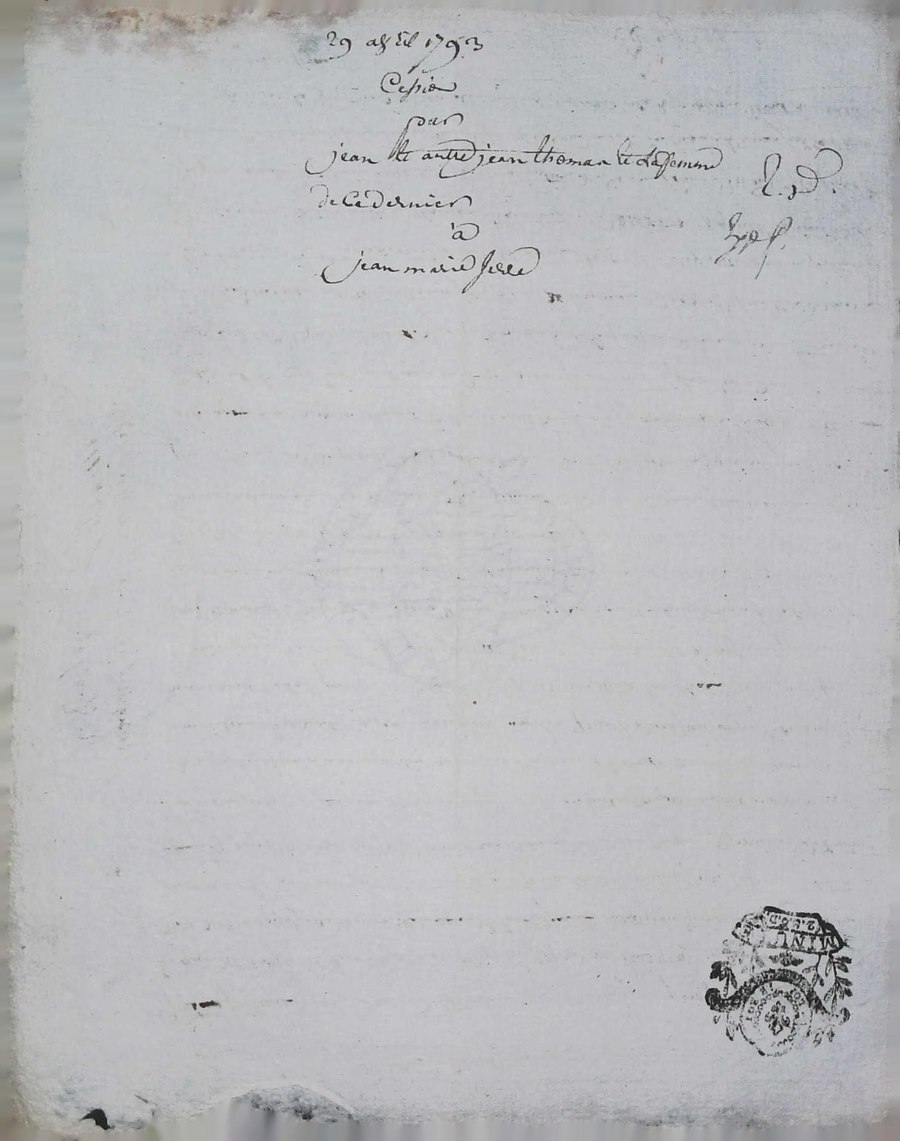 29 avril 1793
Cession
par
jean et autre jean thomas et La femme
de Ce dernier
à
jean marie
MINUTE
2. S. 6 D.
LOI